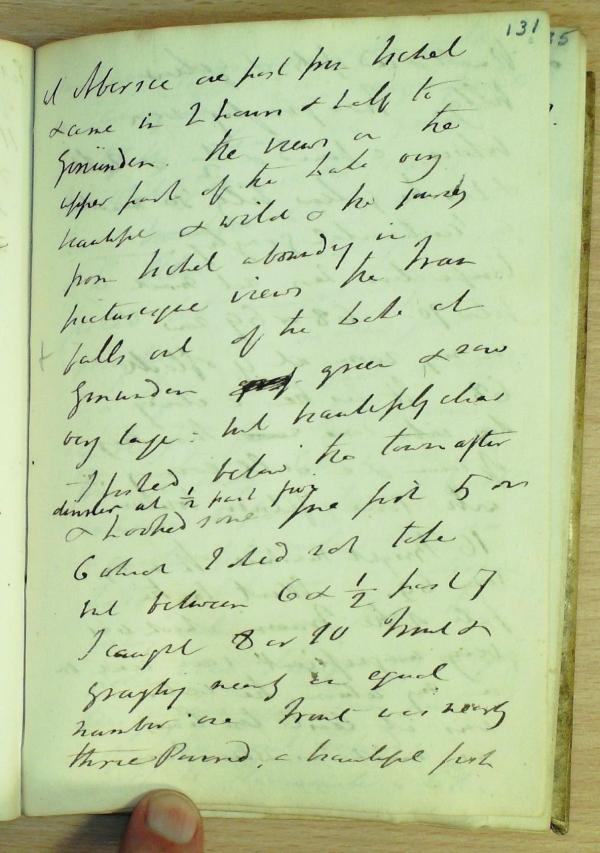 131
35
at Aberzee one post from Ischel
& came in 2 hours & half to
Gmünden. The views on the
upper part of the Lake very
beautiful & wild & the journey
from Ischel abounds in
picturesque views the Traun
falls out of the Lake at
Gmunden green & now
very large: but beautifully clear
- I fished below the town after
dinner at ½ past five
& hooked some fine fish 5 or
6 which I did not take
but between 6 & ½ past 7
I caught 8 or 10 Trout &
grayling nearly in equal
number one Trout was nearly
three Pound, a beautiful fish